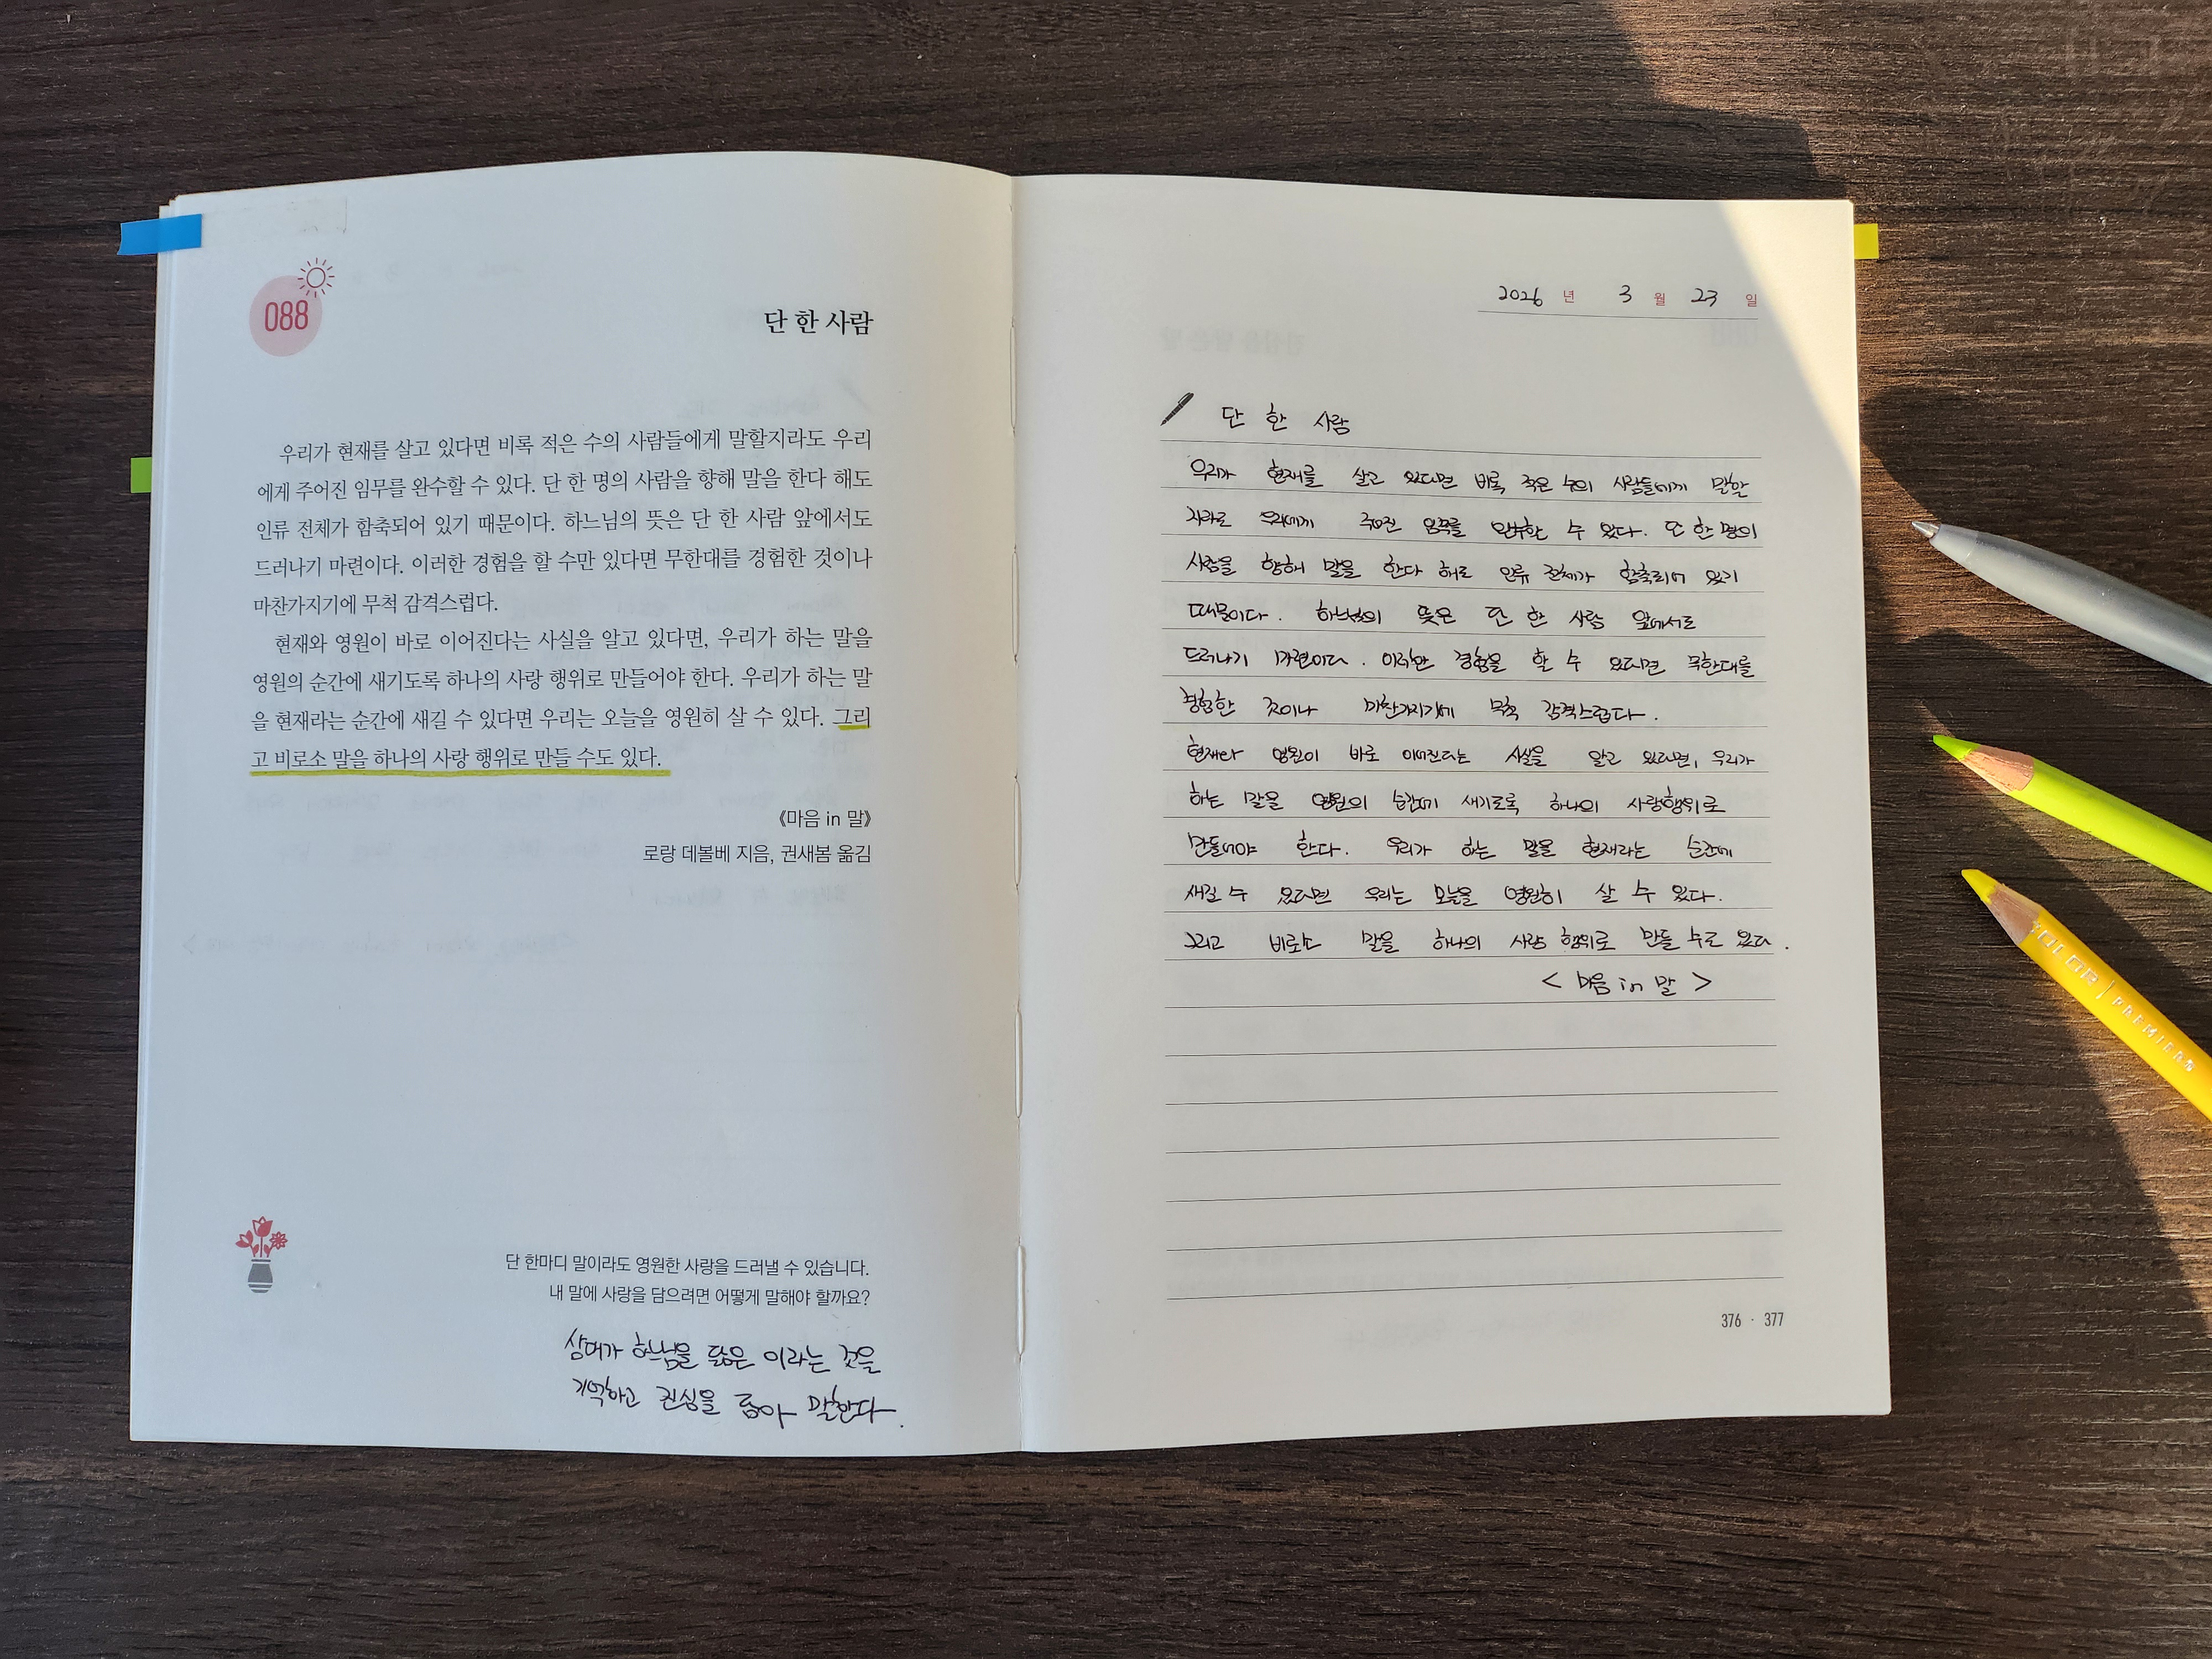 088
단 한 사람
우리가 현재를 살고 있다면 비록 적은 수의 사람들에게 말할지라도 우리
에게 주어진 임무를 완수할 수 있다. 단 한 명의 사람을 향해 말을 한다 해도
인류 전체가 함축되어 있기 때문이다. 하느님의 뜻은 단 한 사람 앞에서도
드러나기 마련이다. 이러한 경험을 할 수만 있다면 무한대를 경험한 것이나
마찬가지기에 무척 감격스럽다.
현재와 영원이 바로 이어진다는 사실을 알고 있다면, 우리가 하는 말을
영원의 순간에 새기도록 하나의 사랑 행위로 만들어야 한다. 우리가 하는 말
을 현재라는 순간에 새길 수 있다면 우리는 오늘을 영원히 살 수 있다. 그리
고 비로소 말을 하나의 사랑 행위로 만들 수도 있다.
《마음 in 말》
로랑 데볼베 지음, 권새봄 옮김
단 한마디 말이라도 영원한 사랑을 드러낼 수 있습니다.
내 말에 사랑을 담으려면 어떻게 말해야 할까요?
상대가 하느님을 닮은 이라는 것을
기억하고 진심을 담아 말한다.
2026 년 3 월 23 일
단 한 사람
우리가 현재를 살고 있다면 비록 적은 수의 사람들에게 말할
지라도 우리에게 주어진 임무를 완수할 수 있다. 단 한 명의
사람을 향해 말을 한다 해도 인류 전체가 함축되어 있기
때문이다. 하느님의 뜻은 단 한 사람 앞에서도
드러나기 마련이다. 이러한 경험을 할 수 있다면 무한대를
경험한 것이나 마찬가지기에 무척 감격스럽다.
현재와 영원이 바로 이어진다는 사실을 알고 있다면, 우리가
하는 말을 영원의 순간에 새기도록 하나의 사랑행위로
만들어야 한다. 우리가 하는 말을 현재라는 순간에
새길 수 있다면 우리는 오늘을 영원히 살 수 있다.
그리고 비로소 말을 하나의 사랑 행위로 만들 수도 있다.
< 마음 in 말 >
376 · 377